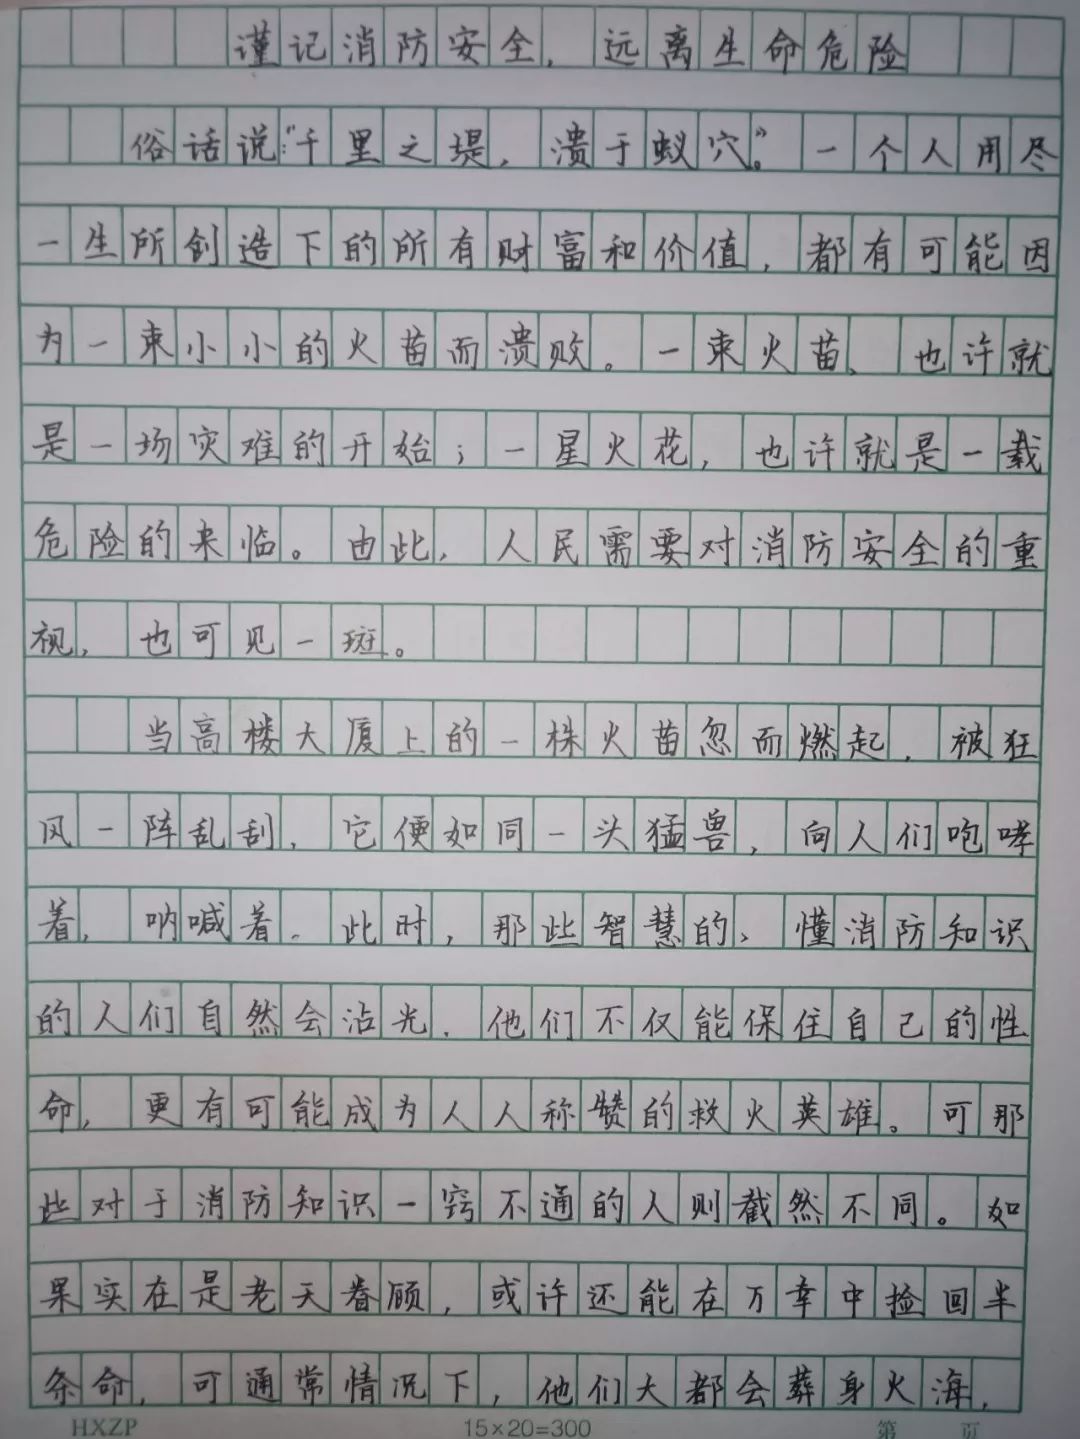 谨记消防安全，远离生命危险
俗话说："千里之堤，溃于蚁穴。"一个人用尽
一生所创造下的所有财富和价值，都有可能因
为一束小小的火苗而溃败。一束火苗、也许就
是一场灾难的开始；一星火花，也许就是一载
危险的来临。由此，人民需要对消防安全的重
视，也可见一斑。
当高楼大厦上的一株火苗忽而燃起，被狂
风一阵乱刮，它便如同一头猛兽，向人们咆哮
着，呐喊着。此时，那些智慧的、懂消防知识
的人们自然会沾光．他们不仅能保住自己的性
命，更有可能成为人人称赞的救火英雄。可那
些对于消防知识一窍不通的人则截然不同。如
果实在是老天眷顾，或许还能在万幸中捡回半
条命，可通常情况下，他们大都会葬身火海，
HXZP
15×20=300
第 页